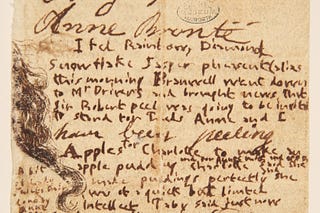 Anne Brontë
I fed Rainbow, Diamond
Snowflake Jasper pheasent (alias
this morning Branwell went down
to Mr Drivers and brought news that
Sir Robert peel was going to be invited
to stand for Leeds Anne and I
have been peeling
Apples for Charlotte to make
apple pudding
puddings perfectly and she
was of a quick but limted
Intellect Taby said just now
A bit
of Lady